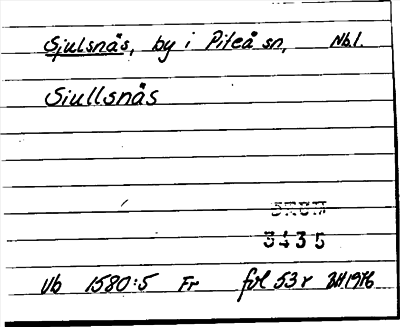 Sjulsnäs, by i Piteå sn, Nb.l.
Siullsnäs
5435
Vb 1580:5 Fr fol 53 r BH1976